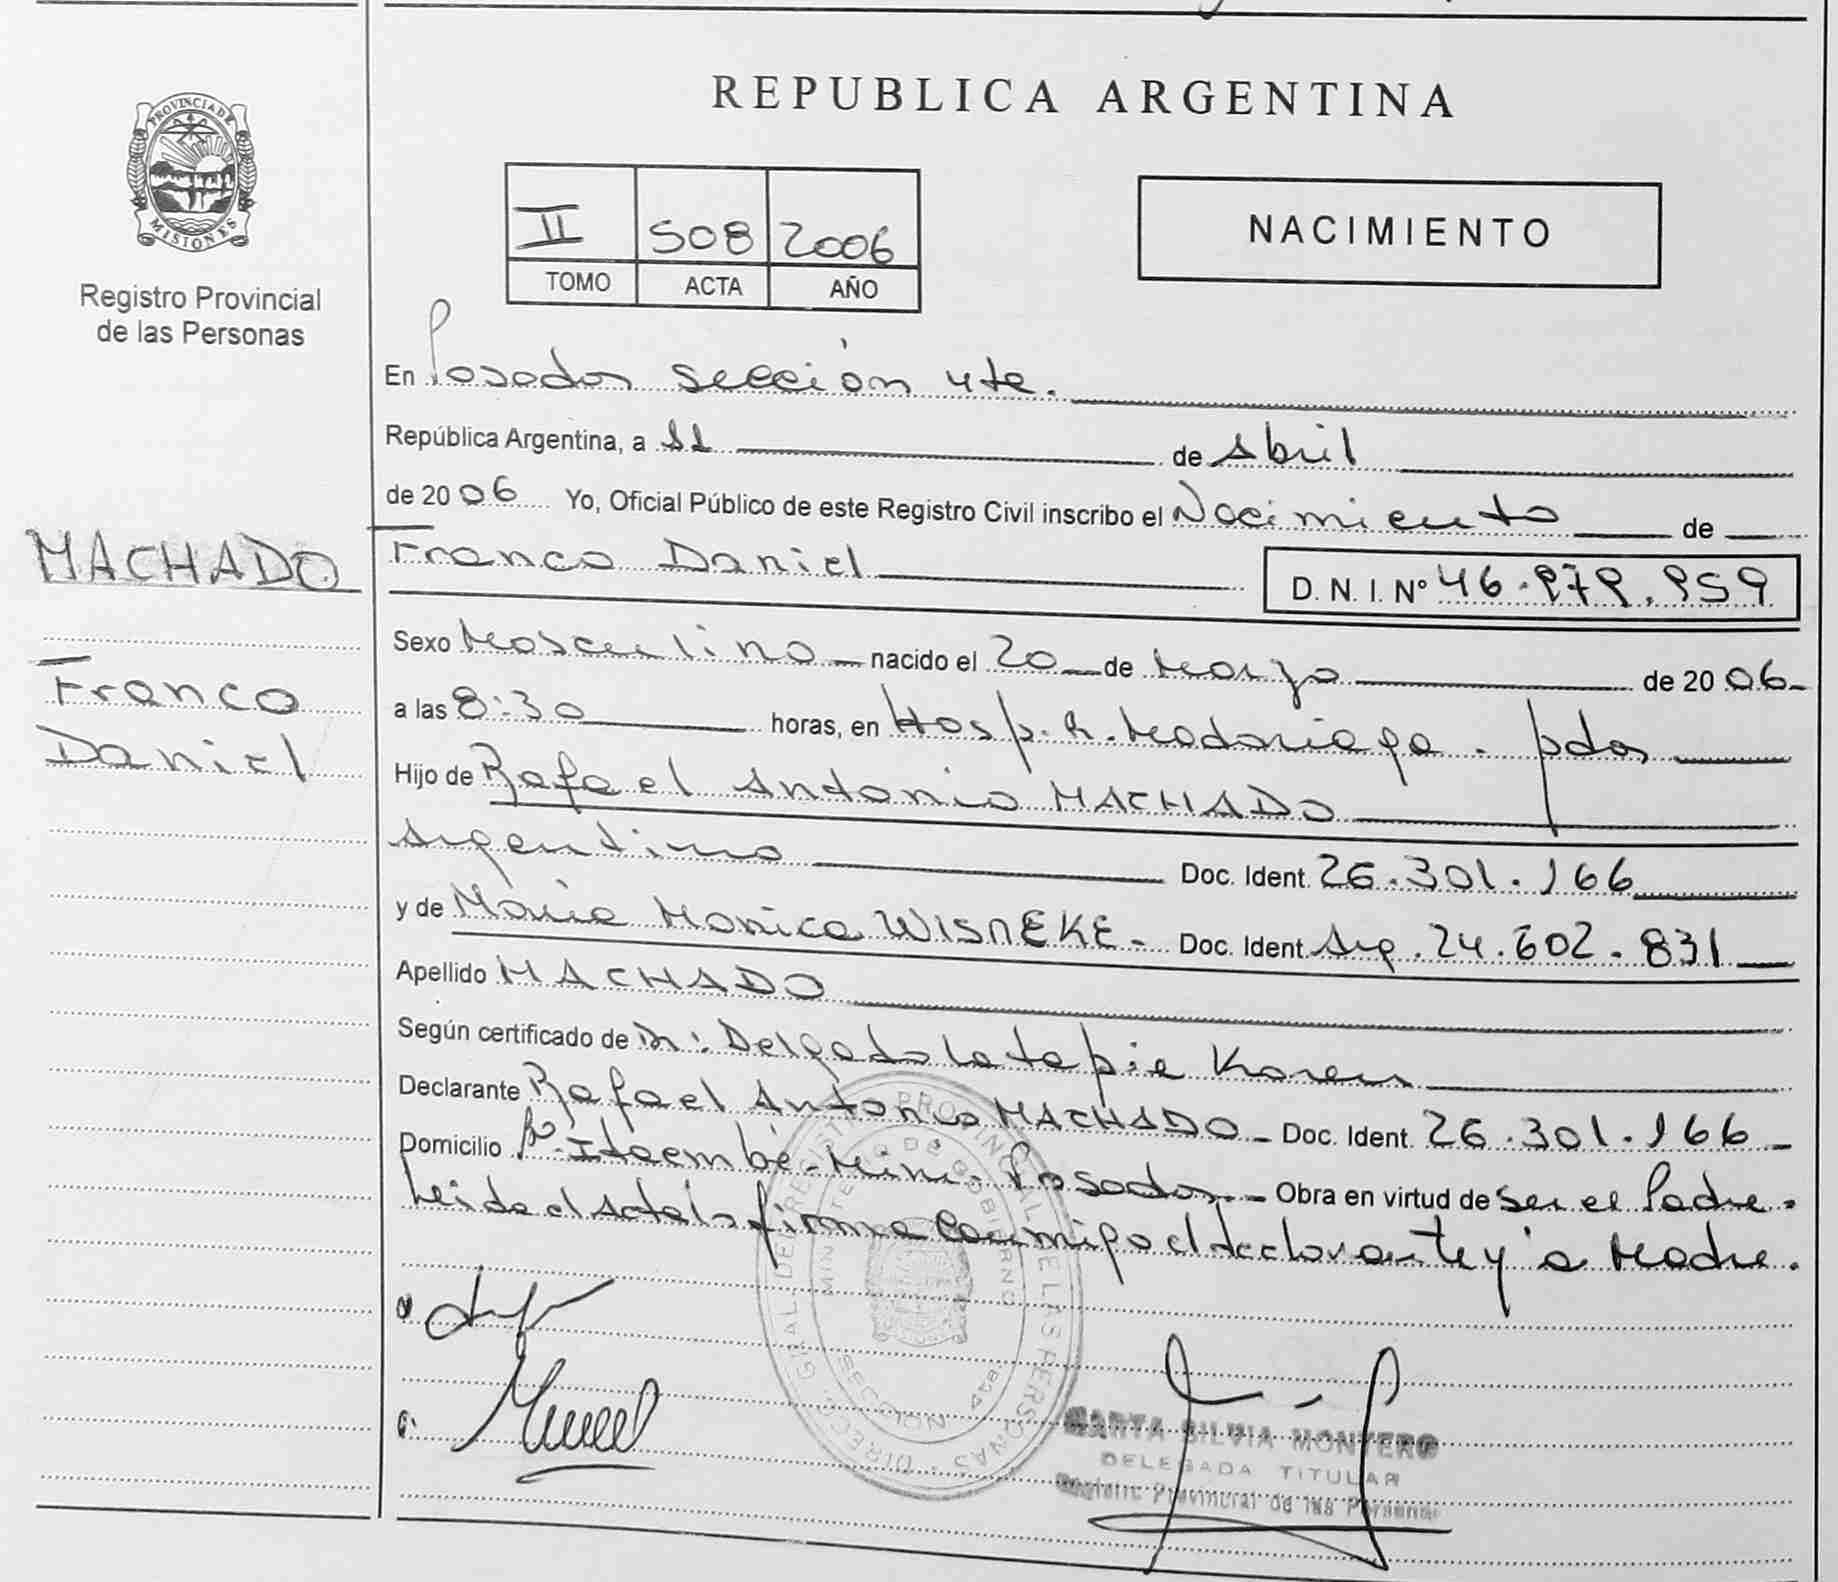 REPUBLICA ARGENTINA
PROVINCIA DE
MISIONES
Registro Provincial
de las Personas
II 508 2006
TOMO ACTA AÑO
NACIMIENTO
En Posadas sección 4ta.
República Argentina, a 11 de Abril
de 2006 Yo, Oficial Público de este Registro Civil inscribo el Nacimiento de
MACHADO
Franco Daniel D. N. I. Nº 46.979.959
Sexo Masculino nacido el 20 de Marzo de 2006
Franco
Daniel
a las 8:30 horas, en Hosp. R. Madariaga - pdas
Hijo de Rafael Antonio MACHADO
Argentino Doc. Ident. 26.301.166
y de María Monica WISNEKE Doc. Ident. Arg. 24.602.831
Apellido MACHADO
Según certificado de Dr: Delgado Latapie Karen
Declarante Rafael Antonio MACHADO Doc. Ident. 26.301.166
Domicilio Bº Itaembé-Mini-Posadas Obra en virtud de ser el Padre.
Leida el Acta la firma conmigo el declarante y la Madre.
DIRECC. GRAL. DEL REGISTRO PROVINCIAL DE LAS PERSONAS
MINISTERIO DE GOBIERNO
SECCION 4ta.
MARTA SILVIA MONTERO
DELEGADA TITULAR
Registro Provincial de las Personas